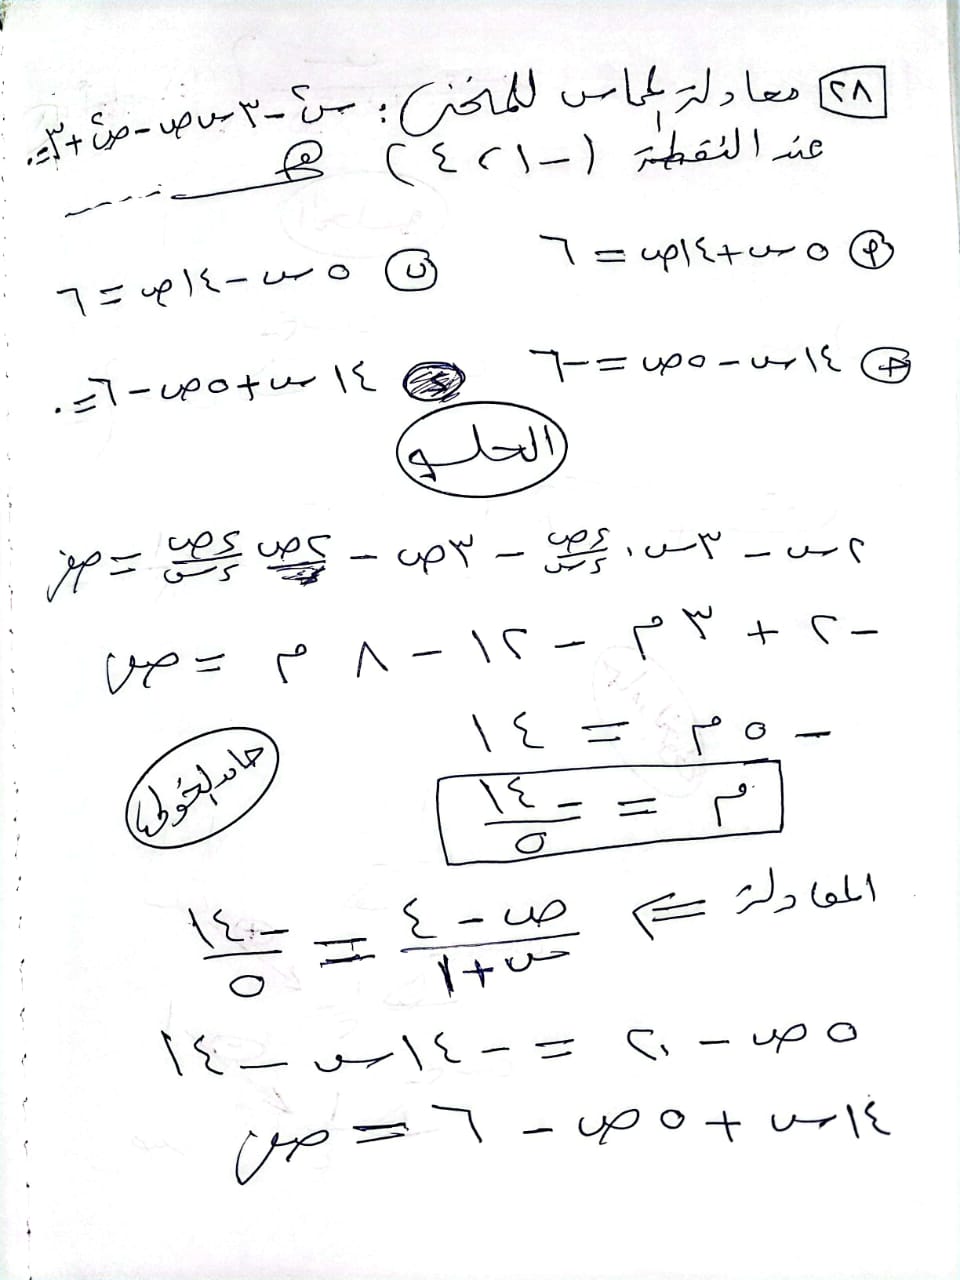 ٢٨ معادلة المماس للمنحنى: س٢ - ٣ س ص - ص٢ + ٣ = ٠
عند النقطة (-١ ، ٤) هي ......
أ ٥ س + ١٤ ص = ٦
ب ٥ س - ١٤ ص = ٦
ج ١٤ س - ٥ ص = -٦
د ١٤ س + ٥ ص - ٦ = ٠
الحلـــو
٢ س - ٣ س . ء ص / ء س - ٣ ص - ٢ ص ء ص / ء س = صفر
- ٢ + ٣ م - ١٢ - ٨ م = صفر
- ٥ م = ١٤
م = - ١٤ / ٥
المعادلة ⇐ ص - ٤ / س + ١ = - ١٤ / ٥
٥ ص - ٢٠ = - ١٤ س - ١٤
١٤ س + ٥ ص - ٦ = صفر